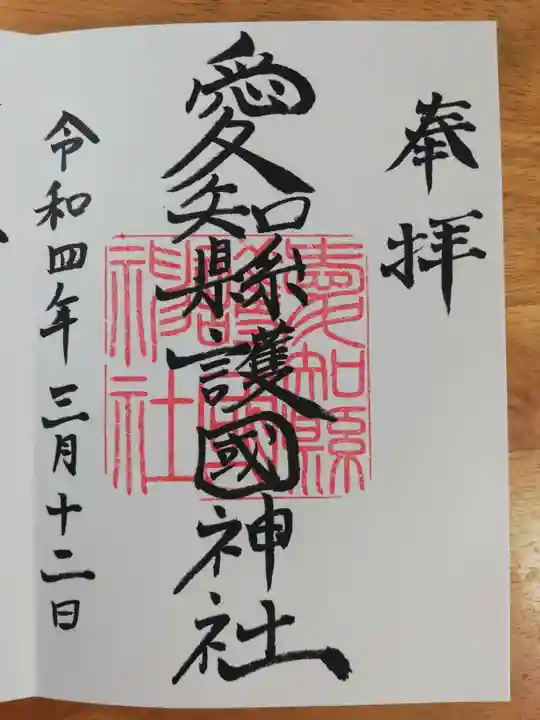 奉拝
愛知縣護國神社
愛知縣護國神社
令和四年三月十二日